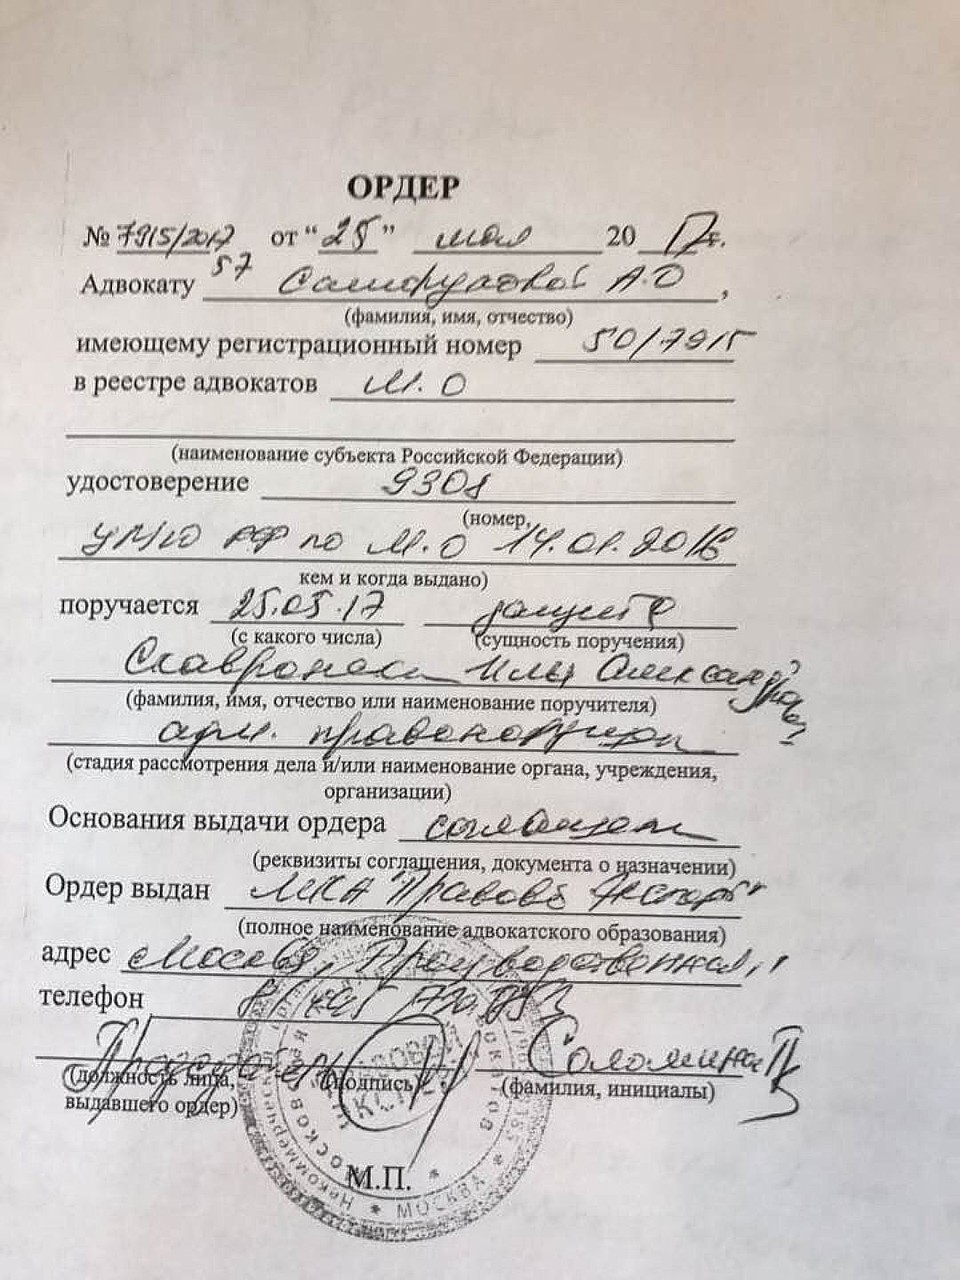 ОРДЕР
№ 7915/2017 от “25” мая 2017г.
57
Адвокату А.О,
(фамилия, имя, отчество)
имеющему регистрационный номер 50/7915
в реестре адвокатов М.О
(наименование субъекта Российской Федерации)
удостоверение 9308
(номер,
УМЮ РФ по М.О 14.01.2016
кем и когда выдано)
поручается 25.05.17 защита
(с какого числа) (сущность поручения)
Илья Александрович
(фамилия, имя, отчество или наименование поручителя)
адм. правонарушение
(стадия рассмотрения дела и/или наименование органа, учреждения,
организации)
Основания выдачи ордера соглашение
(реквизиты соглашения, документа о назначении)
Ордер выдан МКА "Правовой Эксперт"
(полное наименование адвокатского образования)
адрес Москва, Производственная,
телефон
Председатель Соломина
(должность лица, (подпись) (фамилия, инициалы)
выдавшего ордер)
М.П.
МОСКВА